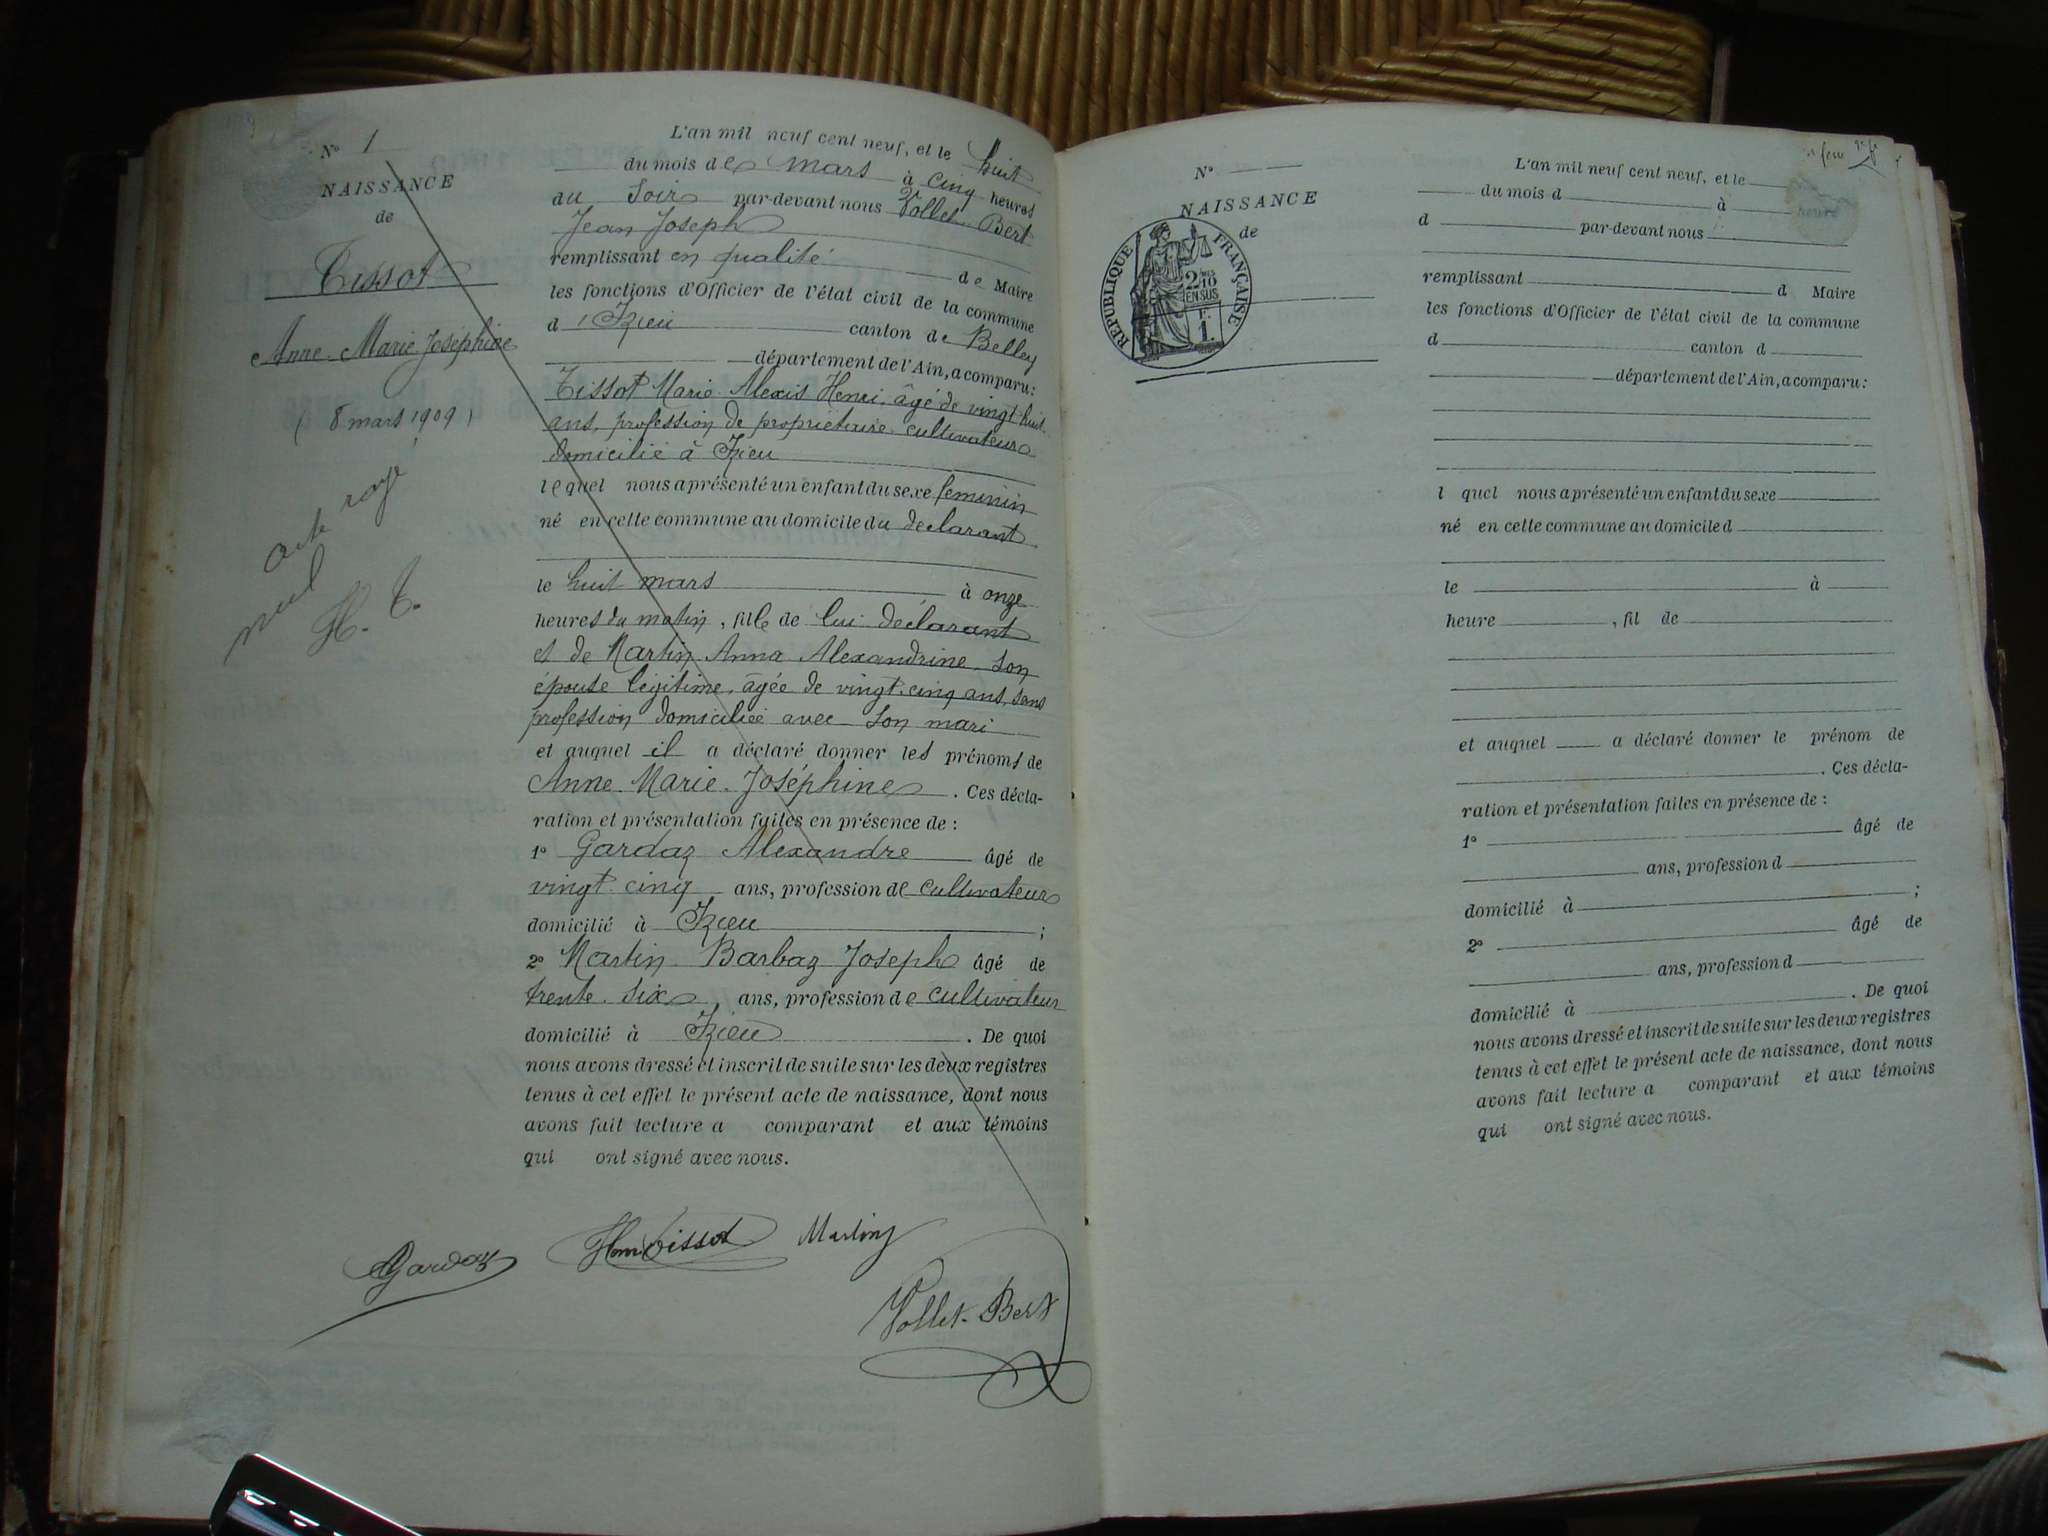 N° 1
NAISSANCE
de
Tissot
Anne Marie Joséphine
( 8 mars 1909 )
acte rayé
nul
H. T.
L'an mil neuf cent neuf, et le huit
du mois de mars à cinq heures
du soir par-devant nous Vollet Bert
Jean Joseph
remplissant en qualité de Maire
les fonctions d'Officier de l'état civil de la commune
d'Izieu canton de Belley
département de l'Ain, a comparu:
Tissot Marie Alexis Henri, âgé de vingt-huit
ans, profession de propriétaire cultivateur
domicilié à Izieu
lequel nous a présenté un enfant du sexe feminin
né en cette commune au domicile du declarant
le huit mars à onze
heures du matin, fille de lui déclarant
et de Martin Anna Alexandrine son
épouse légitime, âgée de vingt-cinq ans, sans
profession domiciliée avec son mari
et auquel il a déclaré donner les prénoms de
Anne Marie Joséphine. Ces décla-
ration et présentation faites en présence de :
1° Gardaz Alexandre âgé de
vingt cinq ans, profession de cultivateur
domicilié à Izieu ;
2° Martin Barbaz Joseph âgé de
trente six, ans, profession de cultivateur
domicilié à Izieu . De quoi
nous avons dressé et inscrit de suite sur les deux registres
tenus à cet effet le présent acte de naissance, dont nous
avons fait lecture a comparant et aux témoins
qui ont signé avec nous.
Gardaz Henri Tissot Martin
Vollet-Bert
N°
NAISSANCE
de
RÉPUBLIQUE FRANÇAISE
2/10
EN SUS
F.
1.
L'an mil neuf cent neuf, et le
du mois d à
heure
d par-devant nous
remplissant d Maire
les fonctions d'Officier de l'état civil de la commune
d canton d
département de l'Ain, a comparu:
l quel nous a présenté un enfant du sexe
né en cette commune au domicile d
le à
heure , fil de
et auquel a déclaré donner le prénom de
. Ces décla-
ration et présentation faites en présence de :
1° âgé de
ans, profession d
domicilié à ;
2° âgé de
ans, profession d
domicilié à . De quoi
nous avons dressé et inscrit de suite sur les deux registres
tenus à cet effet le présent acte de naissance, dont nous
avons fait lecture a comparant et aux témoins
qui ont signé avec nous.